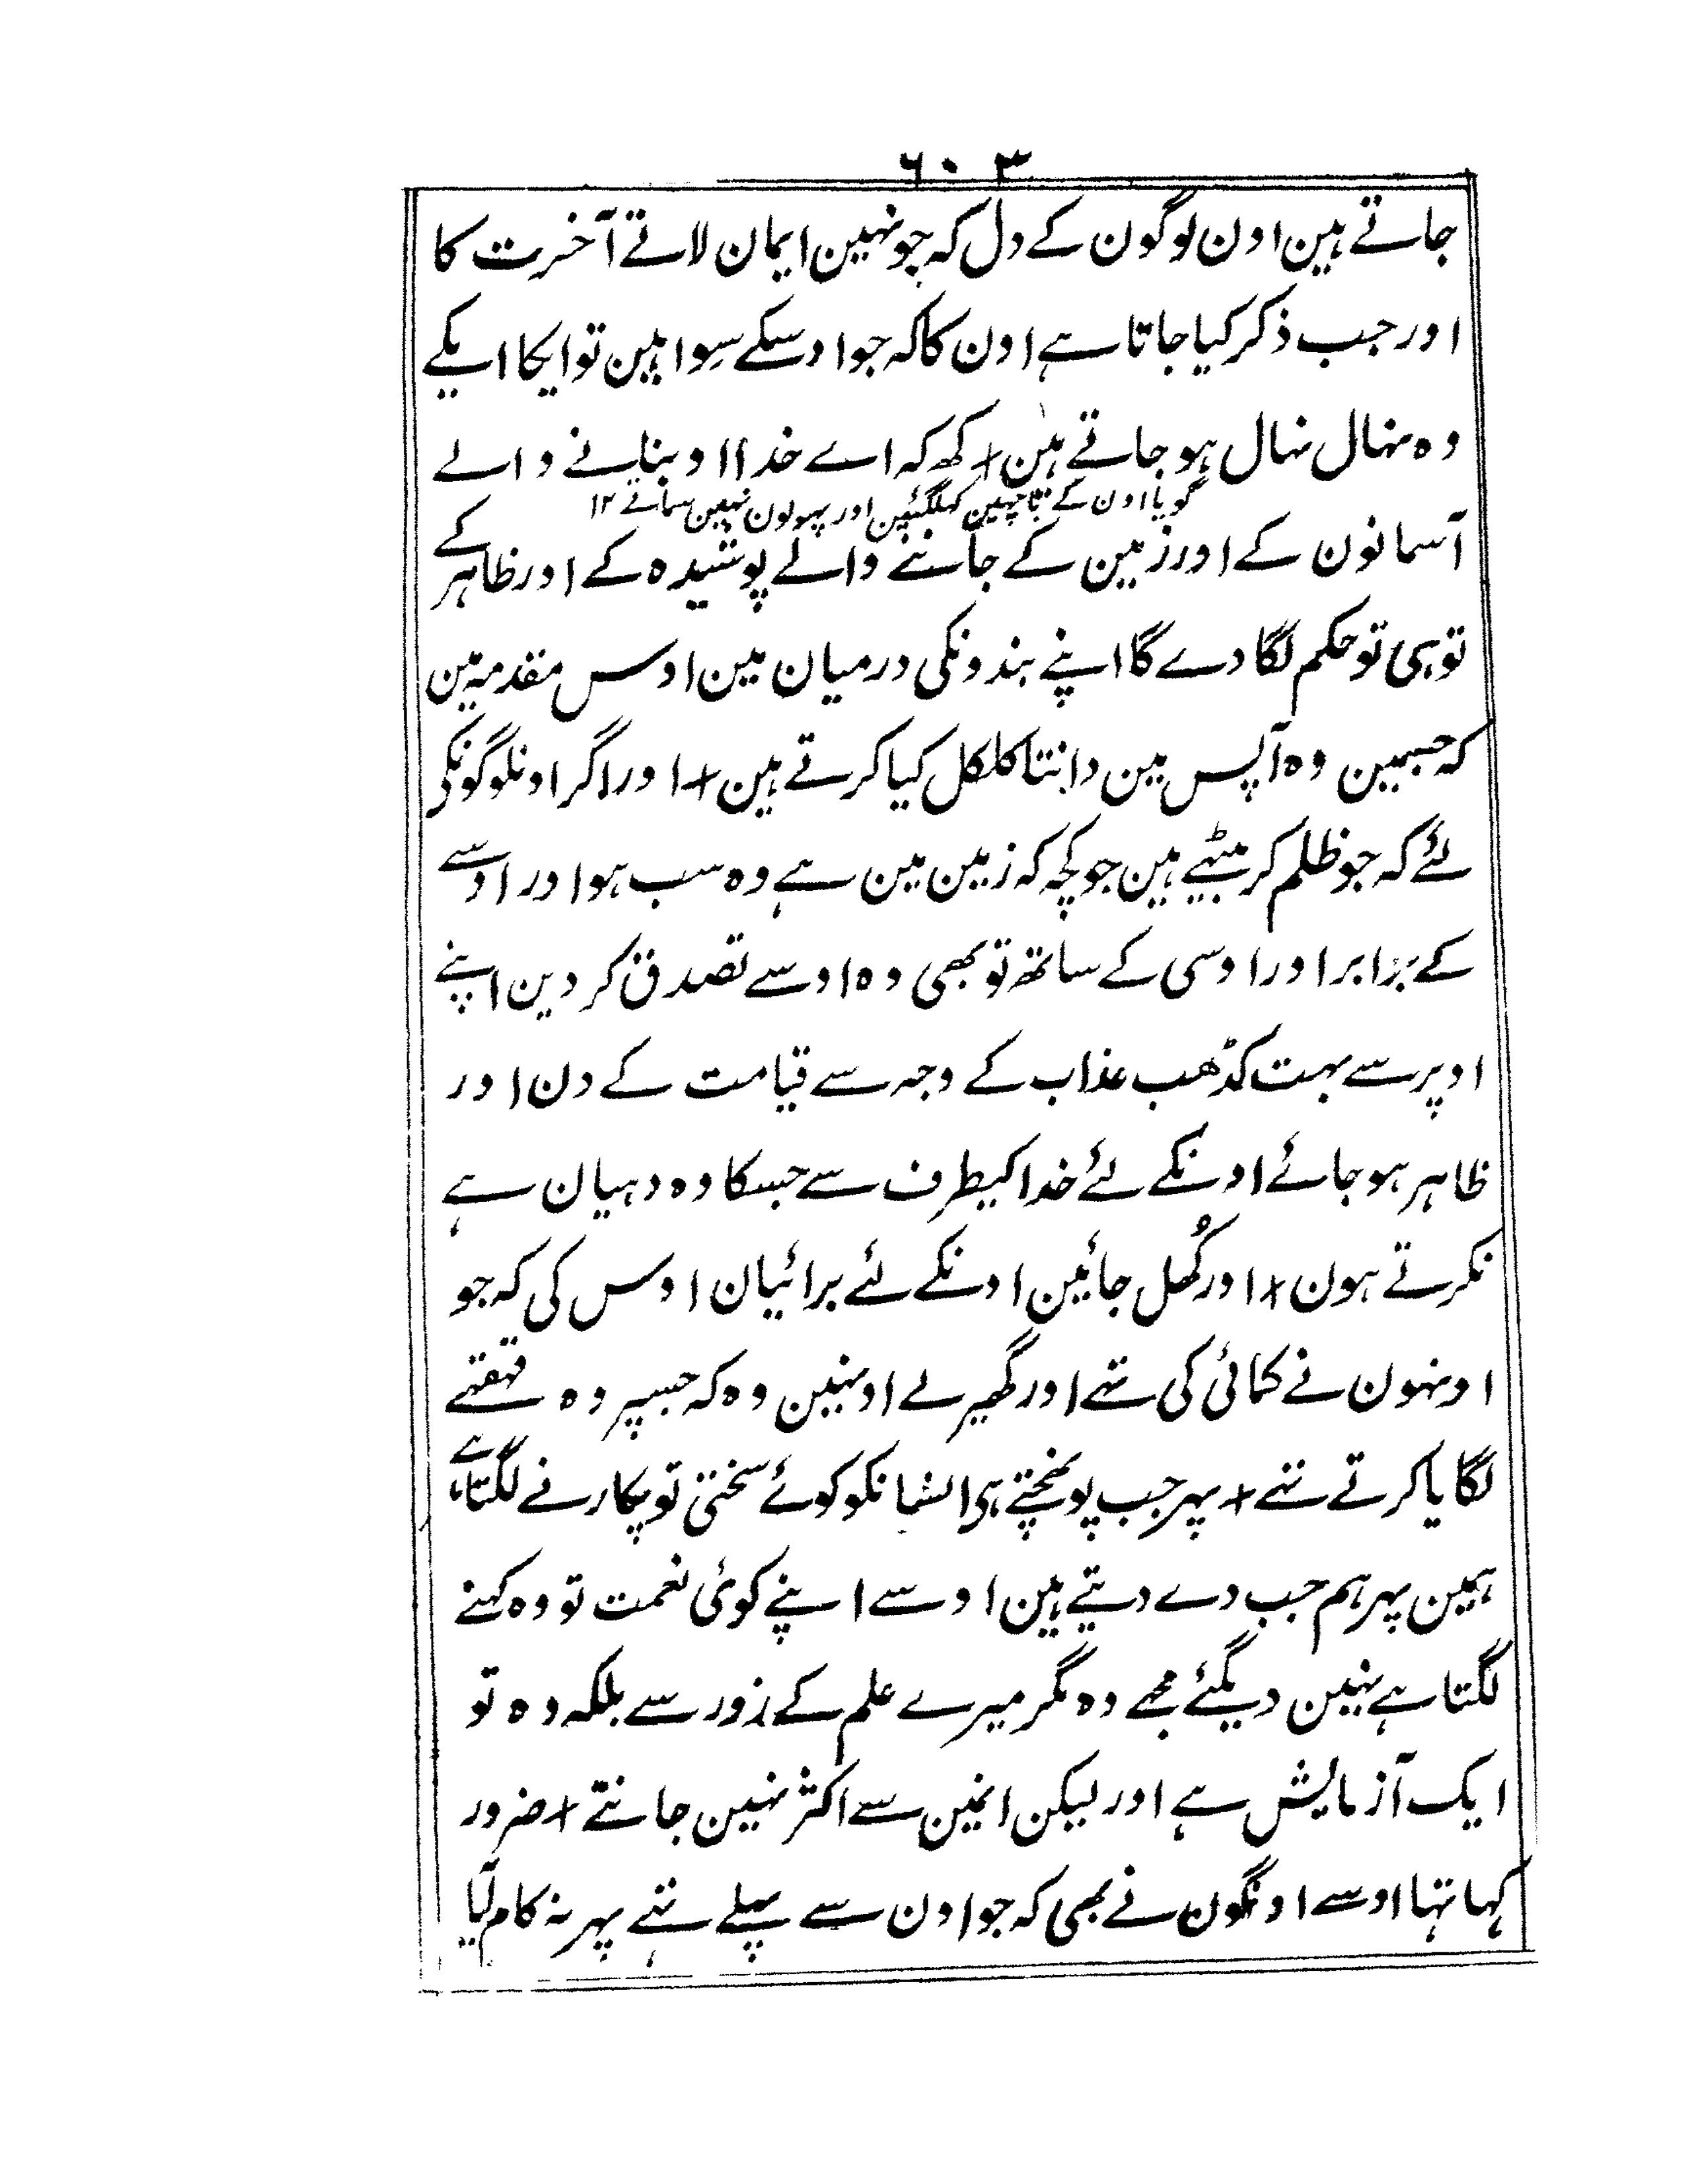 ۶۰۳
جاتے ہین اون لوگون کے دل کہ جو نہین ایمان لاتے آخرت کا
اور جب ذکر کیا جاتا ہے اون کا کہ جو اوسکے سِوا ہین تو ایکا ایکے
وہ نہال نہال ہو جاتے ہین + کھ کہ اے خدا او بنانے والے
گویا اون کے باچہین کہلگئین اور پہولون نہین سماتے ۱۲
آسمانون کے اور زمین کے جاننے والے پوشیدہ کے اور ظاہر کے
تو ہی تو حکم لگا دے گا اپنے بندونکی درمیان مین اوس مقدمہ مین
کہ جسمین وہ آپس مین دانتا کلکل کیا کرتے ہین + اور اگر اونلوگونکی
لئے کہ جو ظلم کر بیٹہے ہین جو کچہ کہ زمین مین ہے وہ سب ہو اور اوسے
کے برابر اور اوسی کے ساتھ تو بھی وہ اوسے تصدق کر دین اپنے
اوپر سے بہت کڈھب عذاب کے وجہ سے قیامت کے دن اور
ظاہر ہو جائے اونکے لئے خدا کیطرف سے جسکا وہ دہیان ہے
نکرتے ہون + اور کُھل جائین اونکے لئے برائیان اوس کی کہ جو
اونہون نے کمائی کی تہے اور گھیر لے اونہین وہ کہ جسپر وہ قہقہے
لگایا کرتے تہے + پہر جب پونہچتے ہی انسانکو کوئے سختی تو پکارنے لگتا ہے
ہمین پہر ہم جب دے دیتے ہین اوسے اپنے کوئی نعمت تو وہ کہنے
لگتا ہے نہین دیگئے مجہے وہ مگر میرے علم کے زور سے بلکہ وہ تو
ایک آزمایش ہے اور لیکن انمین سے اکثر نہین جانتے + ضرور
کہا تہا اوسے اونگون نے بھی کہ جو اون سے پہلے تہے پہر نہ کام آیا